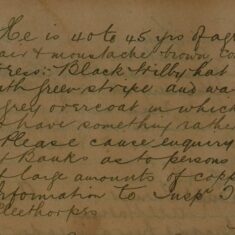 He is 40 to 45 yrs of age
hair & moustache brown, co
Dress:- Black trilby hat
with green stripe and wa
grey overcoat in which
have something rathe
Please cause enquiry
Banks as to persons
large amounts of copp
information to Inspr
Cleethorpes